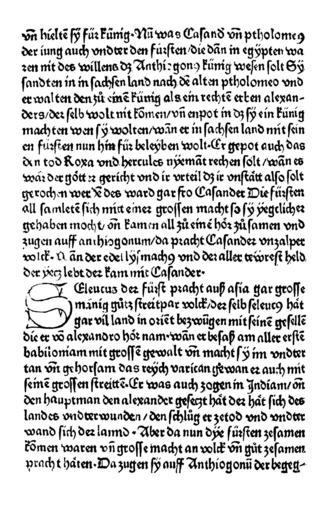 vñ hieltẽ sÿ für künig · Nũ was Casand vñ ptholomeꝰ
der iung auch vndter den fürsten / die dañ in egÿpten wa
ren nit des willens dz Anthigonꝰ künig wesen solt Sÿ
sandten in in sachsen land nach dẽ alten ptholomeo vnd
er walten den zů einẽ künig als ein rechtẽ erben alexan-
ders / der selb wolt nit komen / vñ enpot in dz sÿ ein künig
machten wen sÿ wolten / wañ er in sachsen land mit sein
en fürsten nun hin für beleÿben wolt · Er gepot auch das
den tod Roxa vnd hercules nÿemãt rechen solt / wañ es
wär der götter gericht vnd ir vrteil dz ir vnstätt also solt
gerochen werdẽ des ward gar fro Casander Die fürsten
all samletẽ sich mit einer grossen macht so sÿ ÿegklicher
gehaben mocht / vñ kamen all zů eine hör zůsamen vnd
zugen auff anthiogonum / da pracht Casander vnzalper
volck · der edel lÿsmachꝰ vnd der aller tewrest held
der ÿecz lebt der kam mit Casander ·
SEleucus der fürst pracht auß asia gar grosse
mänig gůtz streitpar volck / der selb seleucꝰ hät
gar vil land in oriẽt bezwügen mit seinẽ geselle
die er võ alexandro hört nam · wañ er besaß am aller erstẽ
babiloniam mit grossẽ gewalt vñ macht sÿ im vndter
tan vñ gehorsam das reÿch varican gewan er auch mit
seinẽ grossen streittẽ · Er was auch zogen in Indiam / vñ
den hauptman den alexander geseczt hät der hät sich des
landes vndterwunden / den schlůg er ze tod vnd vndter
wand sich der lannd · Aber da nun dÿe fürsten zesamen
komen waren vñ grosse macht an volck vñ gůt zesamen
pracht häten · Da zugen sÿ auff Anthiogonũ der begeg-